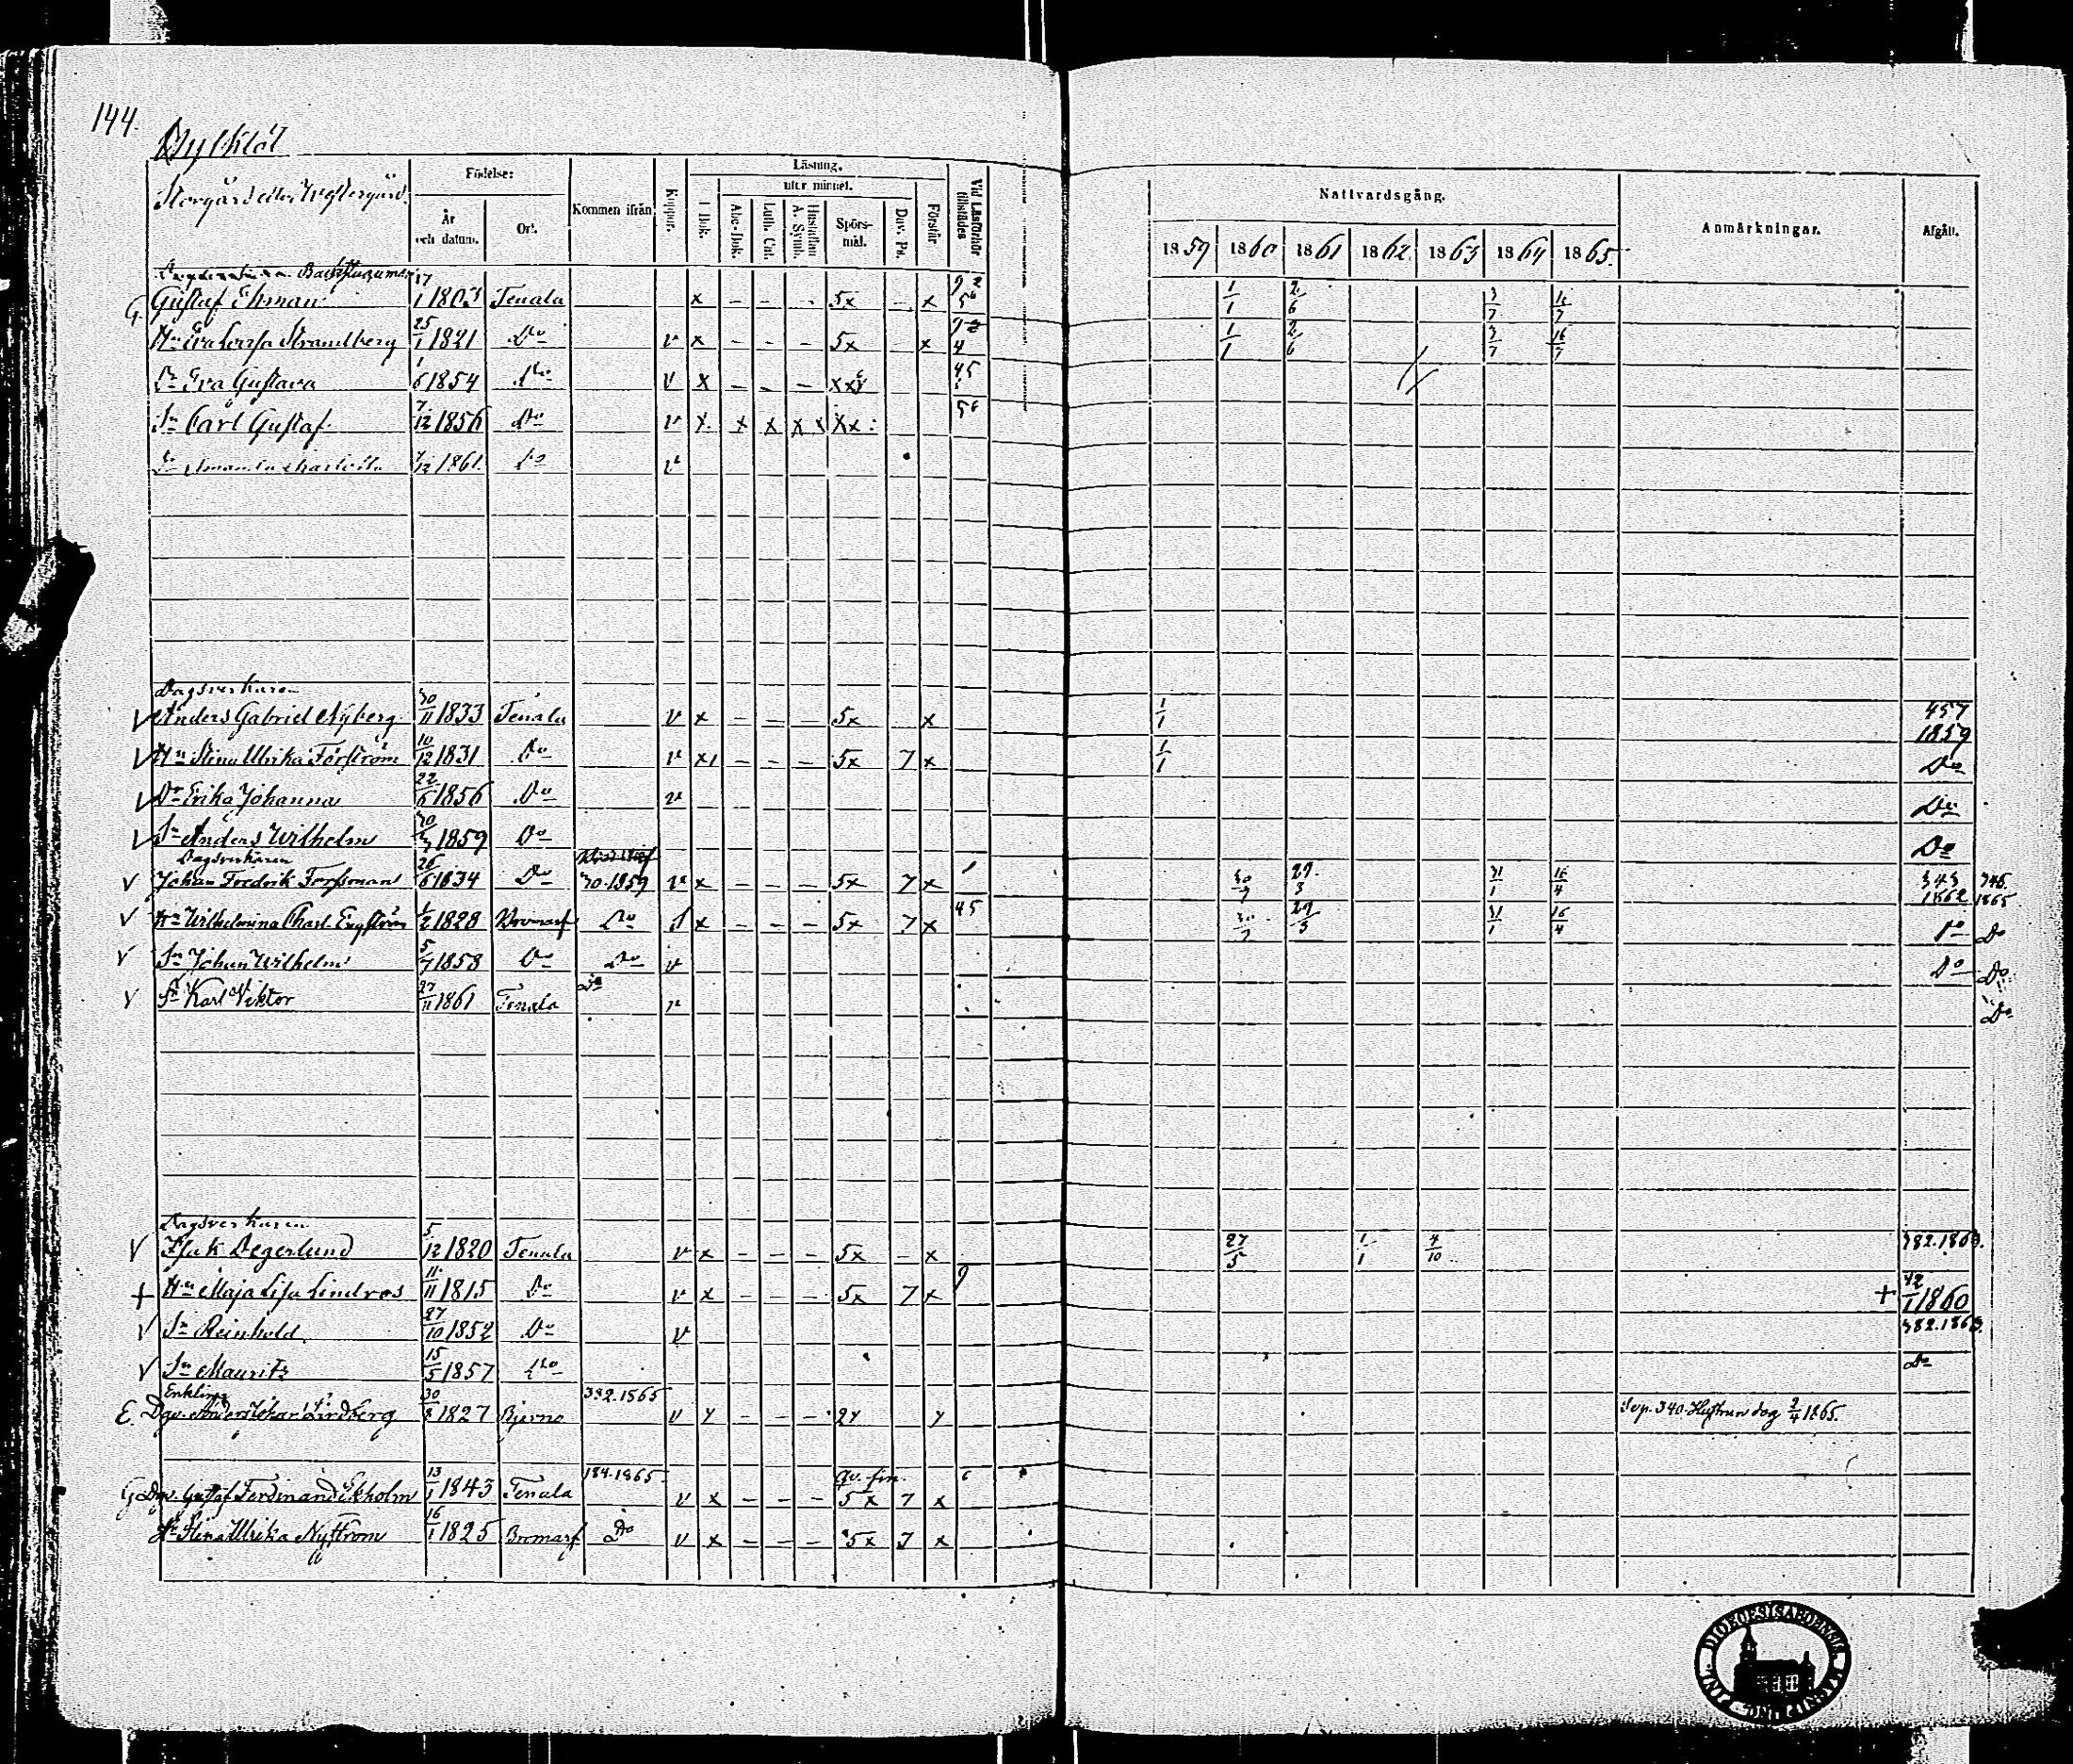 144.
Födelse: Läsning. Nattvardsgång. Anmärkningar. Afgått.
År och datum. Ort. Kommen ifrån Koppor. I Bok. utur minnet. Abc-Bok. Luth. Cat. Hustaflan A. Symb. Spörsmål. Dav. Ps. Förstår Vid Läsförhör tillstädes
1859 1860 1861 1862 1863 1864 1865.
G. Gustaf Ehman 1803 Tenala x – – – 5x – x 1/1 2/6 3/7 16/7
Hu Eva Lovisa Strandberg 25/1 1821 Do v x – – – 5x – x 1/1 2/6 3/7 16/7
Dr Eva Gustava 1/6 1854 Do v x – – – 45
Sn Carl Gustaf 7/12 1856 Do v x x x x x xx: 56
Charlotta 7/12 1861 Do v
Dagsverkaren
V Anders Gabriel Nyberg 30/11 1833 Tenala v x – – – 5x x 1/1 457 1859
V Hu Stina Ulrika Förström 10/12 1831 Do v x – – – 5x 7 x 1/1 Do
V Dr Erika Johanna 22/6 1856 Do v Do
V Sn Anders Wilhelm 1859 Do Do
Dagsverkaren
V Johan Fredrik Forssman 26/6 1834 Do 30.1859 v x – – – 5x 7 x 29/3 31/1 16/4 343 1862 346. 1865
V Hu Wilhelmina Charl. Engström 1/2 1828 Bromarf Do x – – – 5x 7 x 45 29/3 31/1 16/4 Do Do
V Sn Johan Wilhelm 5/7 1858 Do Do v Do Do
V Sn Karl Viktor 27/11 1861 Tenala Do v Do
Dagsverkaren
V Isak Degerlund 5/12 1820 Tenala v x – – – 5x – x 27/5 1/1 4/10 382.1863.
+ Hu Maja Lisa Lindros 11/11 1815 Do v x – – – 5x 7 x + 1860
V Sn Reinhold 27/10 1852 Do v 382.1863.
V Sn Mauritz 15/5 1857 Do Do
Enkling 382.1865
E. Dgv. Anders Johan Lindberg 30/8 1827 Bjerno v y – – – 2y y Sep. 340. Hustrun dog 2/4 1865.
184.1865
G Dgv. Gustaf Ferdinand Ekholm 13/1 1843 Tenala v x – – – 5x 7 x
Hu Stina Ulrika Nyström 16/1 1825 Bromarf Do v x – – – 5x 7 x